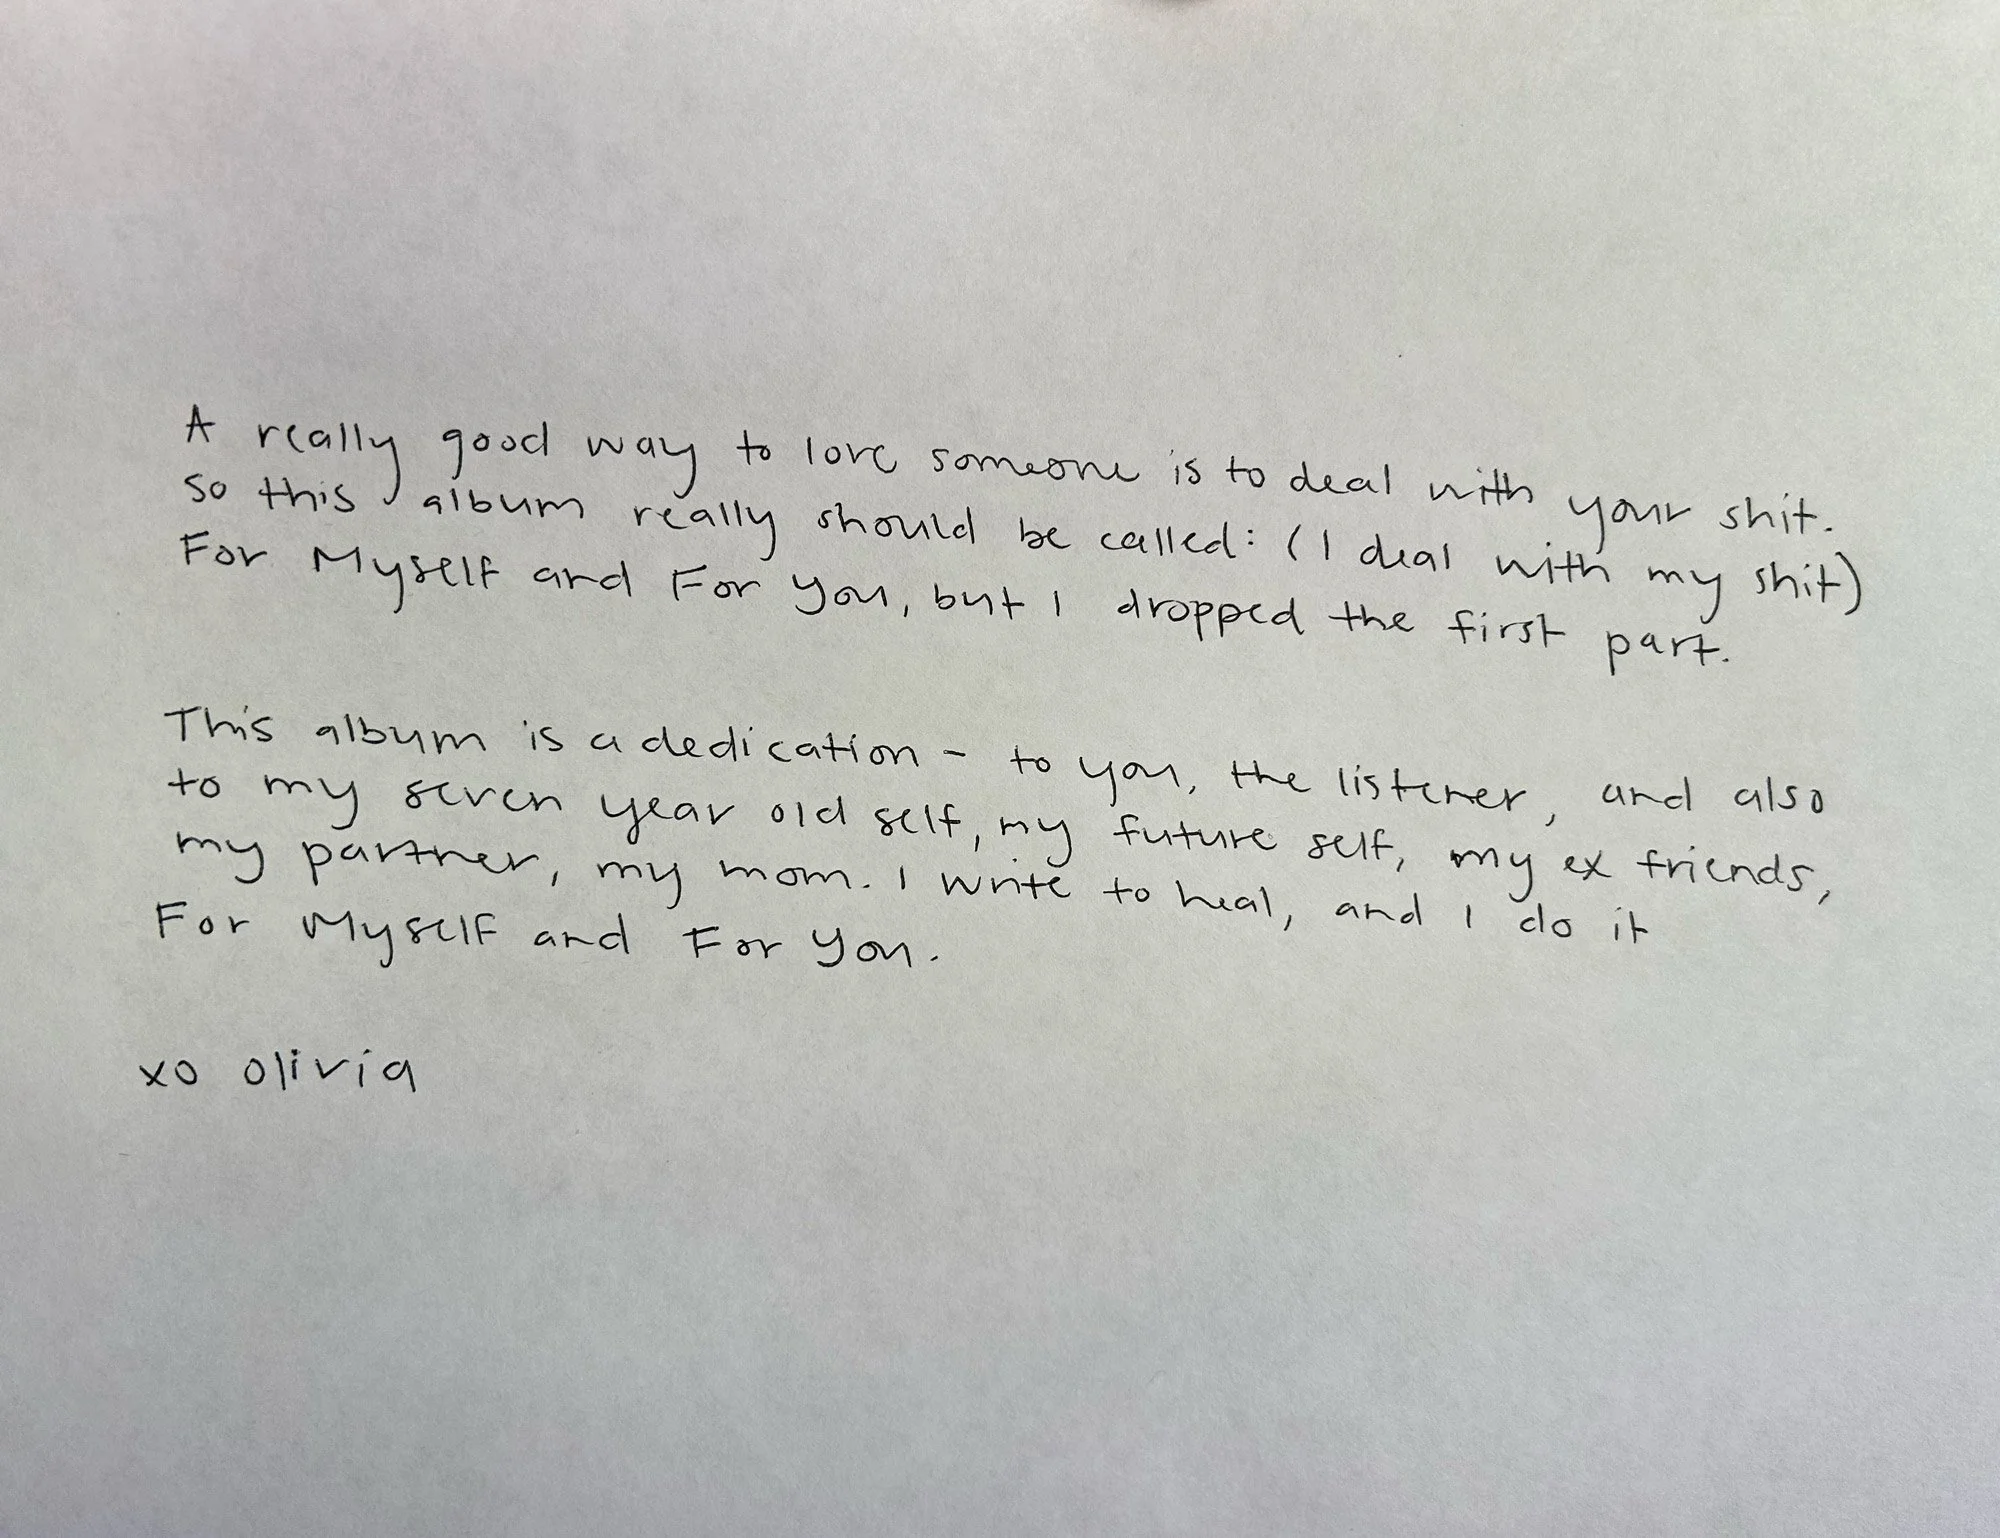 A really good way to love someone is to deal with your shit.
so this album really should be called: (I deal with my shit)
For Myself and For You, but I dropped the first part.
This album is a dedication - to you, the listener, and also
to my seven year old self, my future self, my ex friends,
my partner, my mom. I write to heal, and I do it
For Myself and For You.
xo olivia